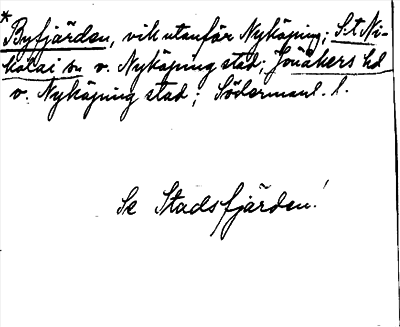 * Byfjärden, vik utanför Nyköping; S:t Ni-
kolai sn o. Nyköping stad; Jönåkers hd
o. Nyköping stad; Södermanl. l.
Se Stadsfjärden!